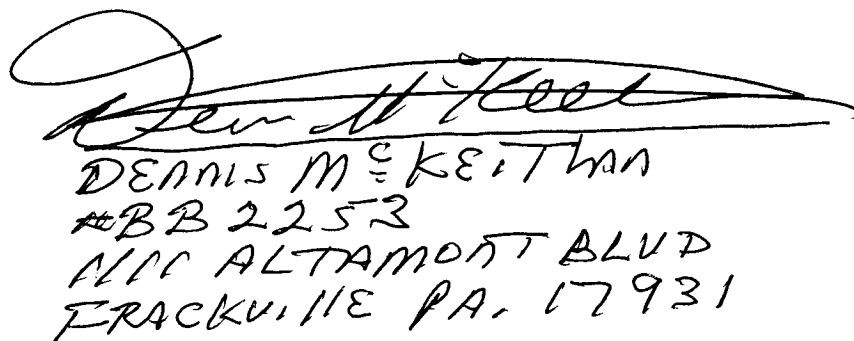 Dennis McKee
DENNIS McKEITHAN
#BB 2253
1111 ALTAMONT BLVD
FRACKVILLE PA. 17931